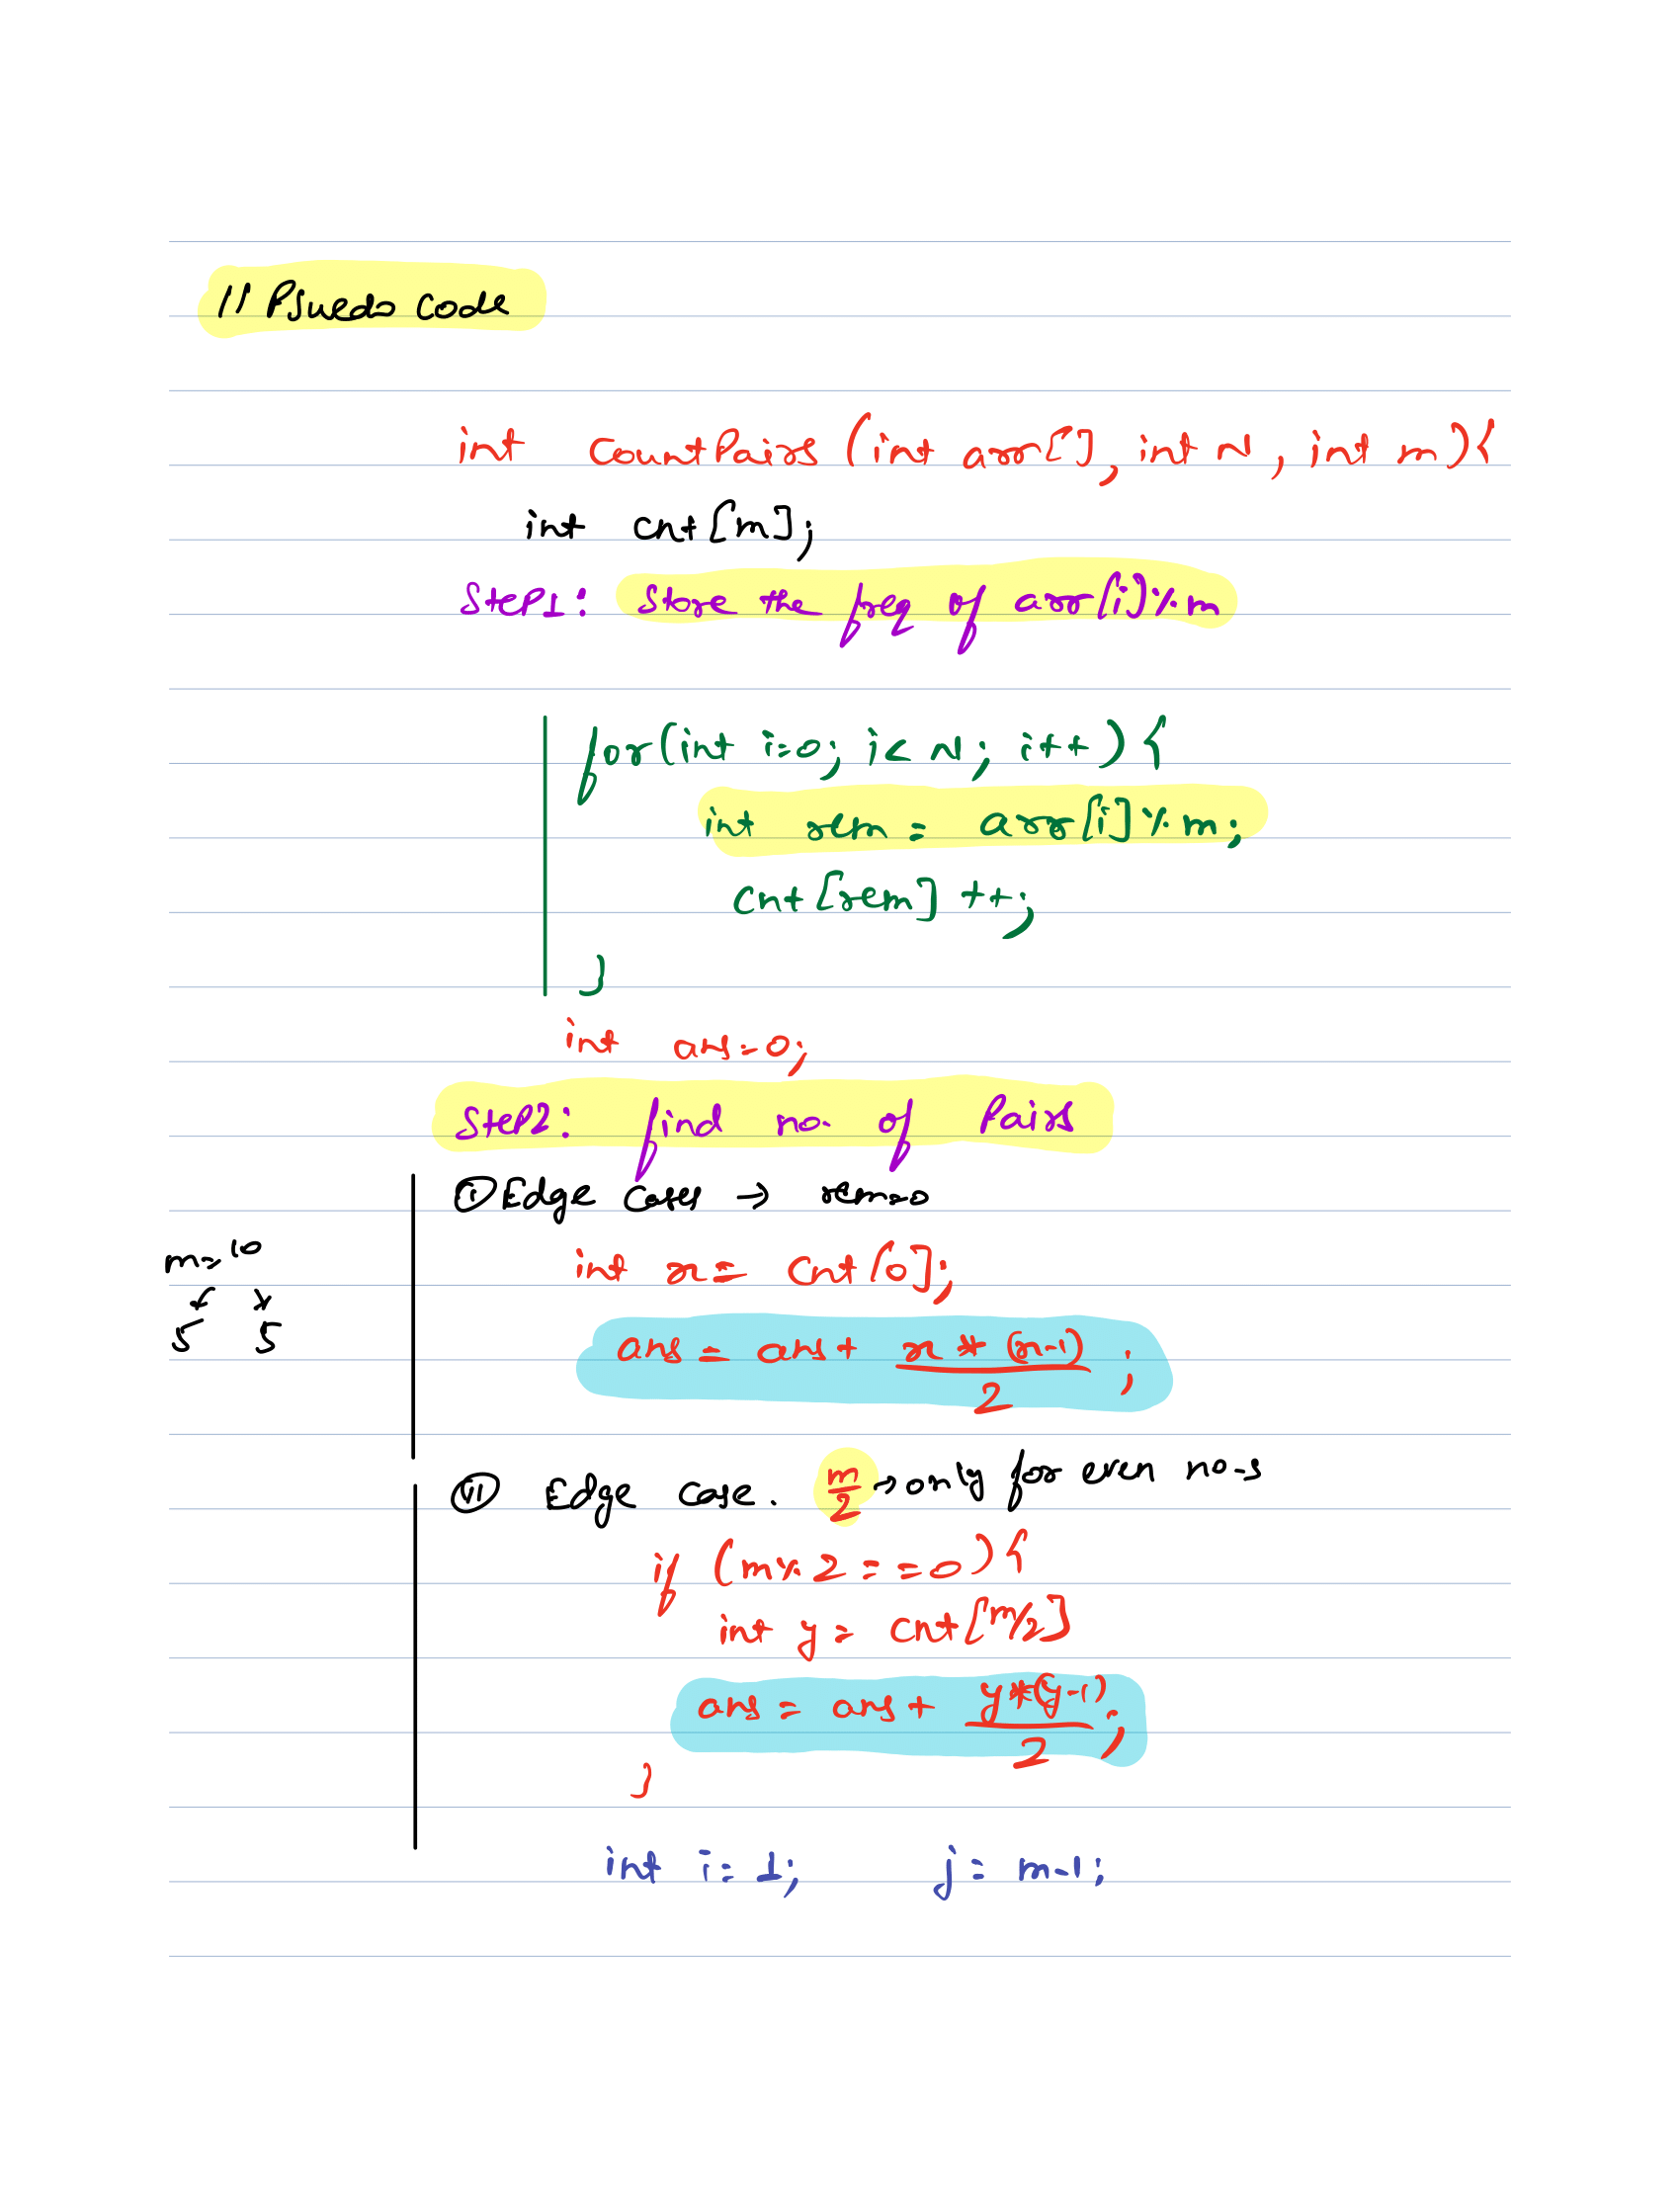 // Psuedo code
int CountPairs (int arr[], int N, int m){
int cnt[m];
Step1: Store the freq of arr[i]%m
for(int i=0; i< N; i++){
int rem = arr[i]%m;
cnt[rem]++;
}
int ans=0;
Step2: find no. of Pairs
(i) Edge cases → rem=0
m=10
5 5
int x= cnt[0];
ans = ans + x * (x-1) / 2 ;
(ii) Edge case. m/2 → only for even no-s
if (m%2==0){
int y= cnt[m/2]
ans = ans + y*(y-1) / 2 ;
}
int i=1; j= m-1;